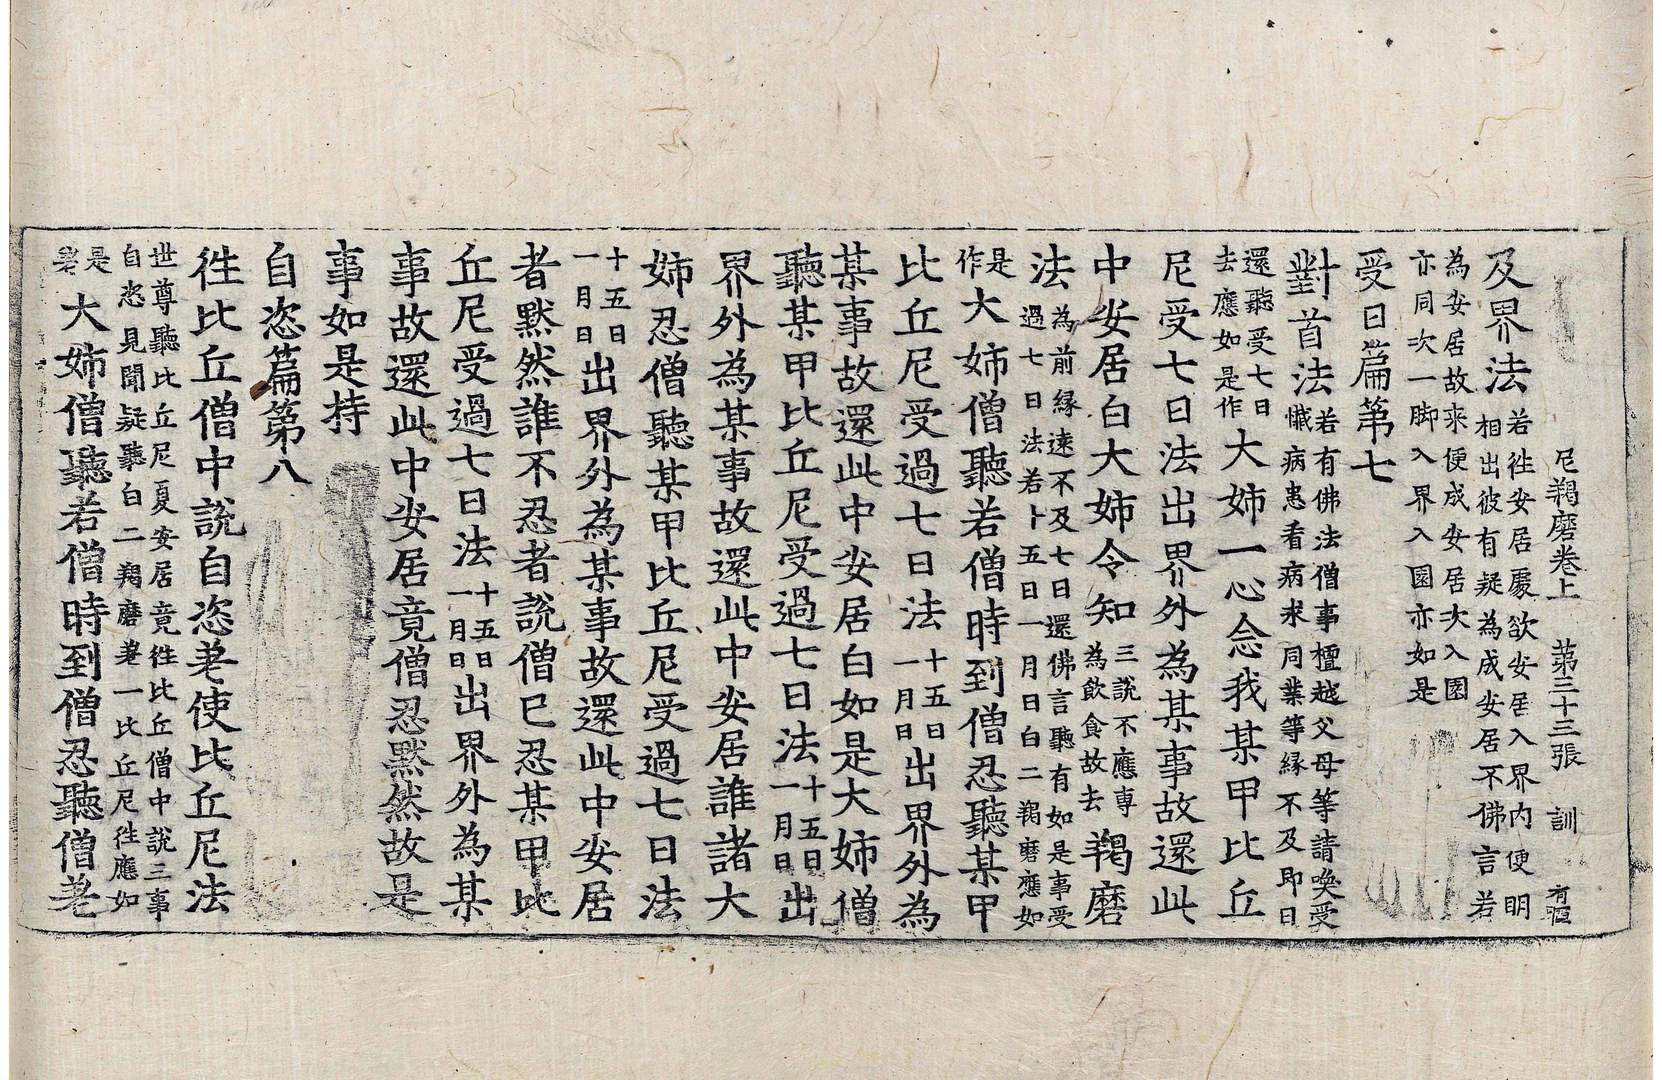 尼羯磨卷上　第三十三張　訓　有恒
及界法若徃安居處欲安居入界内便明相出彼有疑為成安居不佛言若
為安居故来便成安居次入園亦同次一脚入界入園亦如是
受日篇第七
對首法若有佛法僧事檀越父母等請喚受懺病患看病求同業等緣不及即日
還聽受七日去應如是作大姉一心念我某甲比丘
尼受七日法出界外為某事故還此
中安居白大姉令知三說不應專為飲食故去羯磨
法為前縁遠不及七日還佛言聽有如是事受過七日法若十五日一月日白二羯磨應如
是作大姉僧聽若僧時到僧忍聽某甲
比丘尼受過七日法十五日一月日出界外為
某事故還此中安居白如是大姉僧
聽某甲比丘尼受過七日法十五日一月日出
界外為某事故還此中安居誰諸大
姉忍僧聽某甲比丘尼受過七日法
十五日一月日出界外為某事故還此中安居
者默然誰不忍者說僧已忍某甲比
丘尼受過七日法十五日一月日出界外為某
事故還此中安居竟僧忍默然故是
事如是持
自恣篇第八
徃比丘僧中說自恣差使比丘尼法
世尊聽比丘尼夏安居竟徃比丘僧中說三事自恣見聞疑聽白二羯磨差一比丘尼徃應如
是差大姉僧聽若僧時到僧忍聽僧差